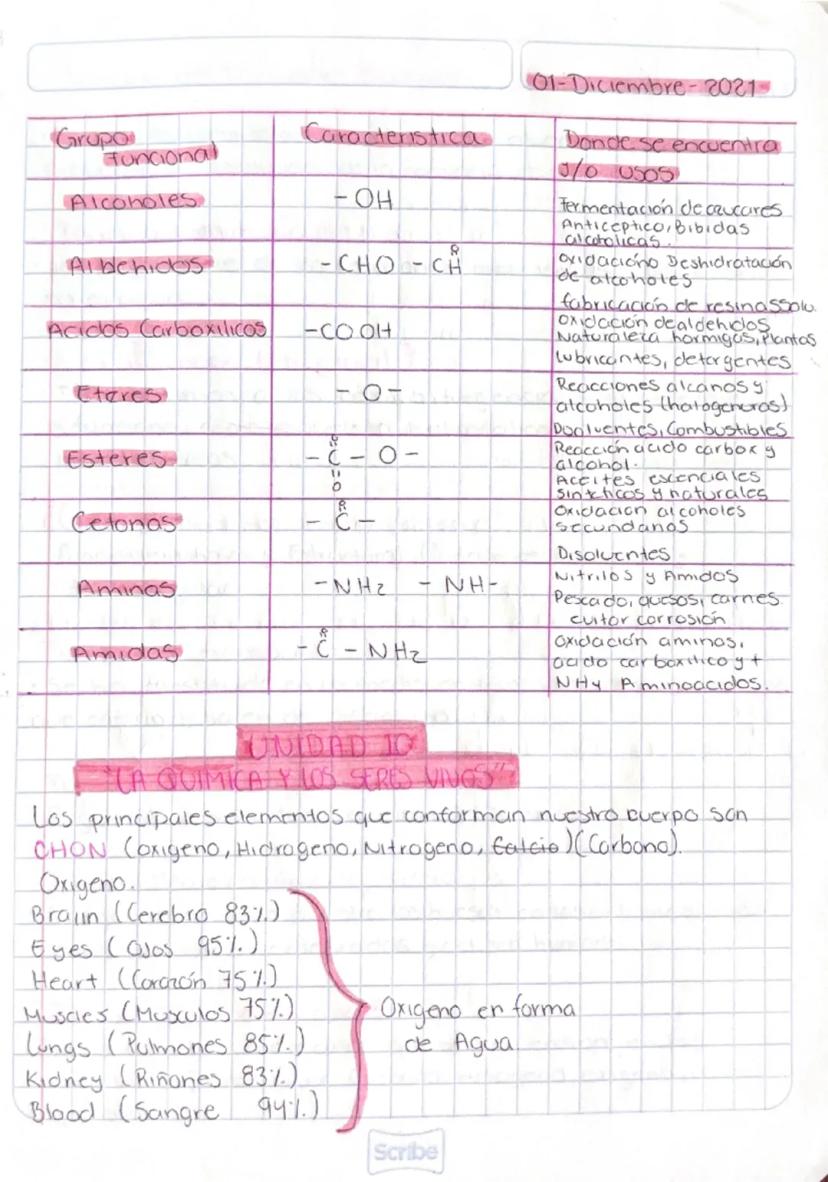 01-Diciembre-2021
Grupo Funcional
Caracteristica
Donde se encuentra
y/o usos
Alcoholes
-OH
Fermentación de azucares
Anticeptico, Bibidas
alcoholicas.
Albehidos
-CHO -CH
R
oxidación o Deshidratación
de alcoholes
fabricación de resinas solv.
Acidos Carboxilicos
-COOH
Oxidación de aldehidos
Naturaleza hormigas, Plantas
Lubricantes, detergentes
Eteres
-O-
Reacciones alcanos y
alcoholes (halogenuros)
Combustibles
Esteres
R
-C-O-
"
O
Reacción acido carbox y
alcohol.
Aceites escenciales
sinteticos y naturales
Cetonas
R
-C-
Oxidacion alcoholes
secundarios
Disolventes
Aminas
-NH2 -NH-
Nitrilos y Amidos
Pescado, quesos, carnes
evitar corrosión
Amidas
R
-C-NH2
Oxidación aminas,
acido carboxilico y +
NH4 Aminoacidos.
UNIDAD 10
"LA QUIMICA Y LOS SERES VIVOS"
Los principales elementos que conforman nuestro cuerpo son
CHON (oxigeno, Hidrogeno, Nitrogeno, Calcio)(Carbono).
Oxigeno.
Braiin (Cerebro 83%)
Eyes (Ojos 95%.)
Heart (Corazón 75%)
Muscles (Musculos 75%)
Lungs (Pulmones 85%.)
Kidney (Riñones 83%.)
Blood (Sangre 94%.)
Oxigeno en forma
de Agua.
Scribe